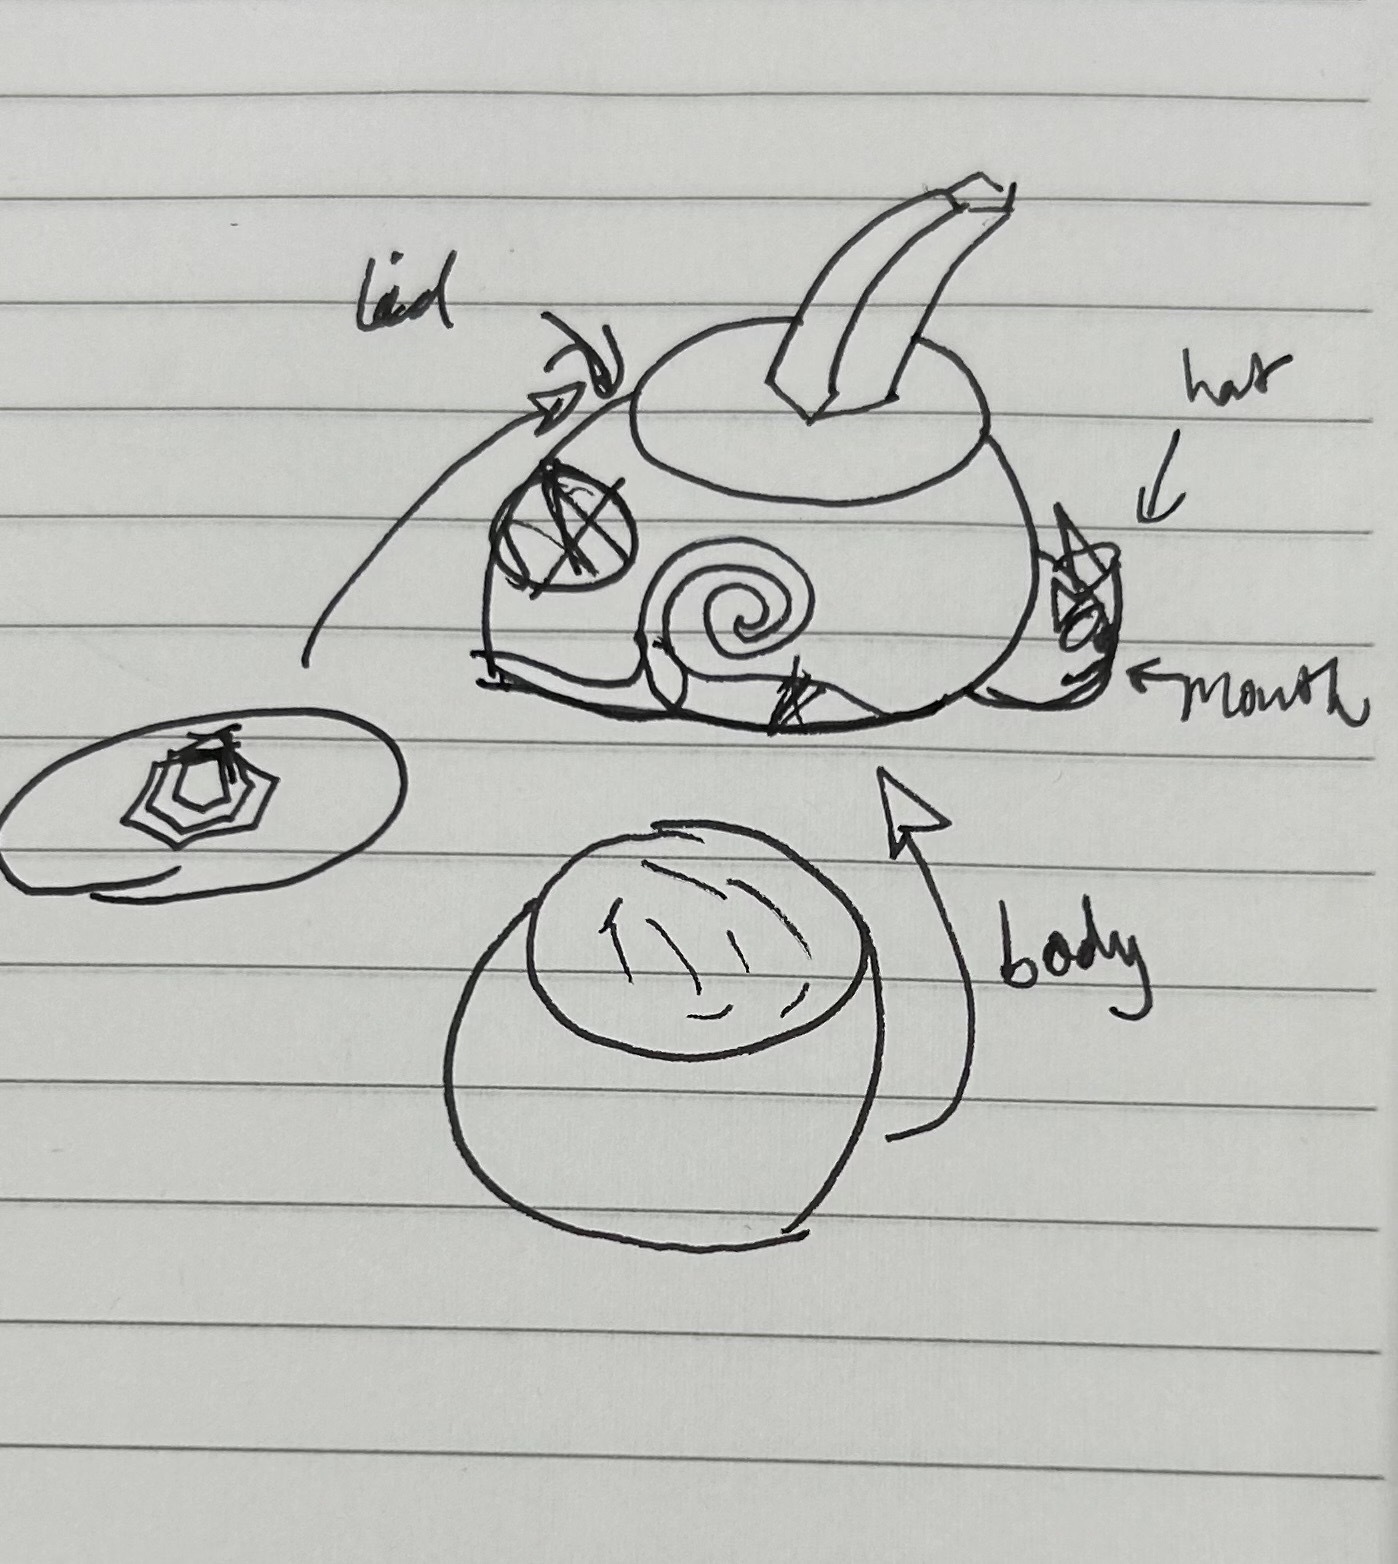 lid
hat
mouth
body